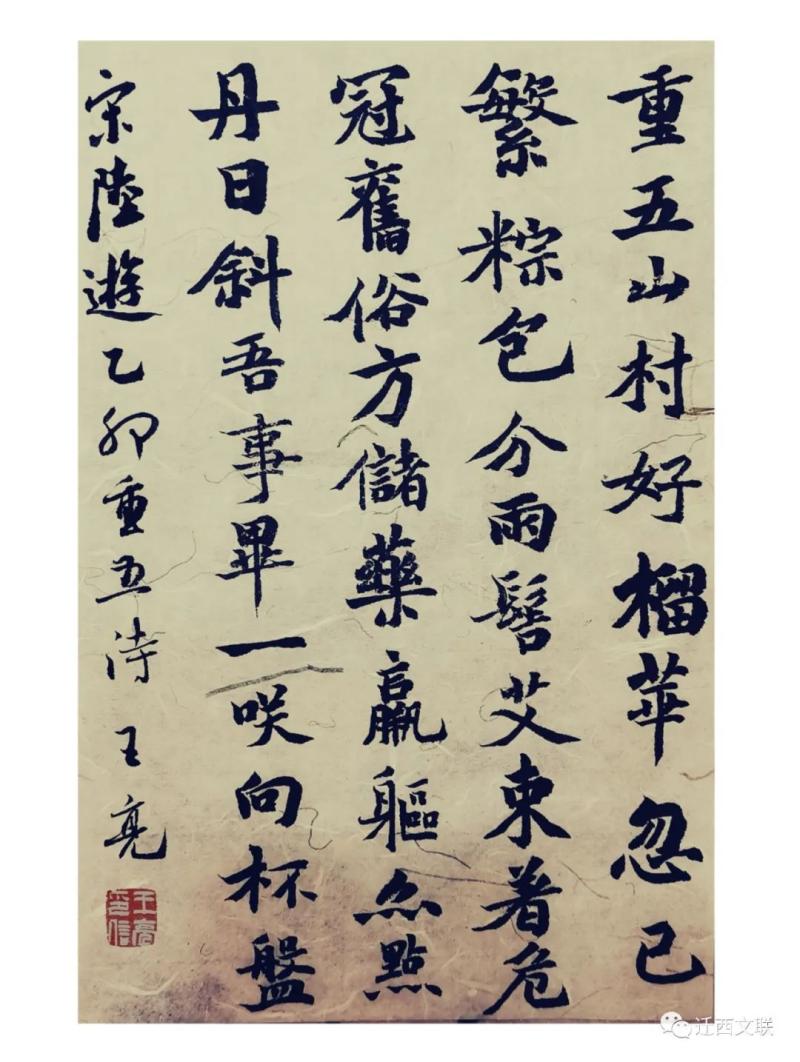 重五山村好榴華忽已
繁粽包分雨髻艾束著危
冠舊俗方儲藥羸軀亦點
丹日斜吾事畢一咲向杯盤
宋陸遊乙卯重五诗王亮
王亮印信
迁西文联